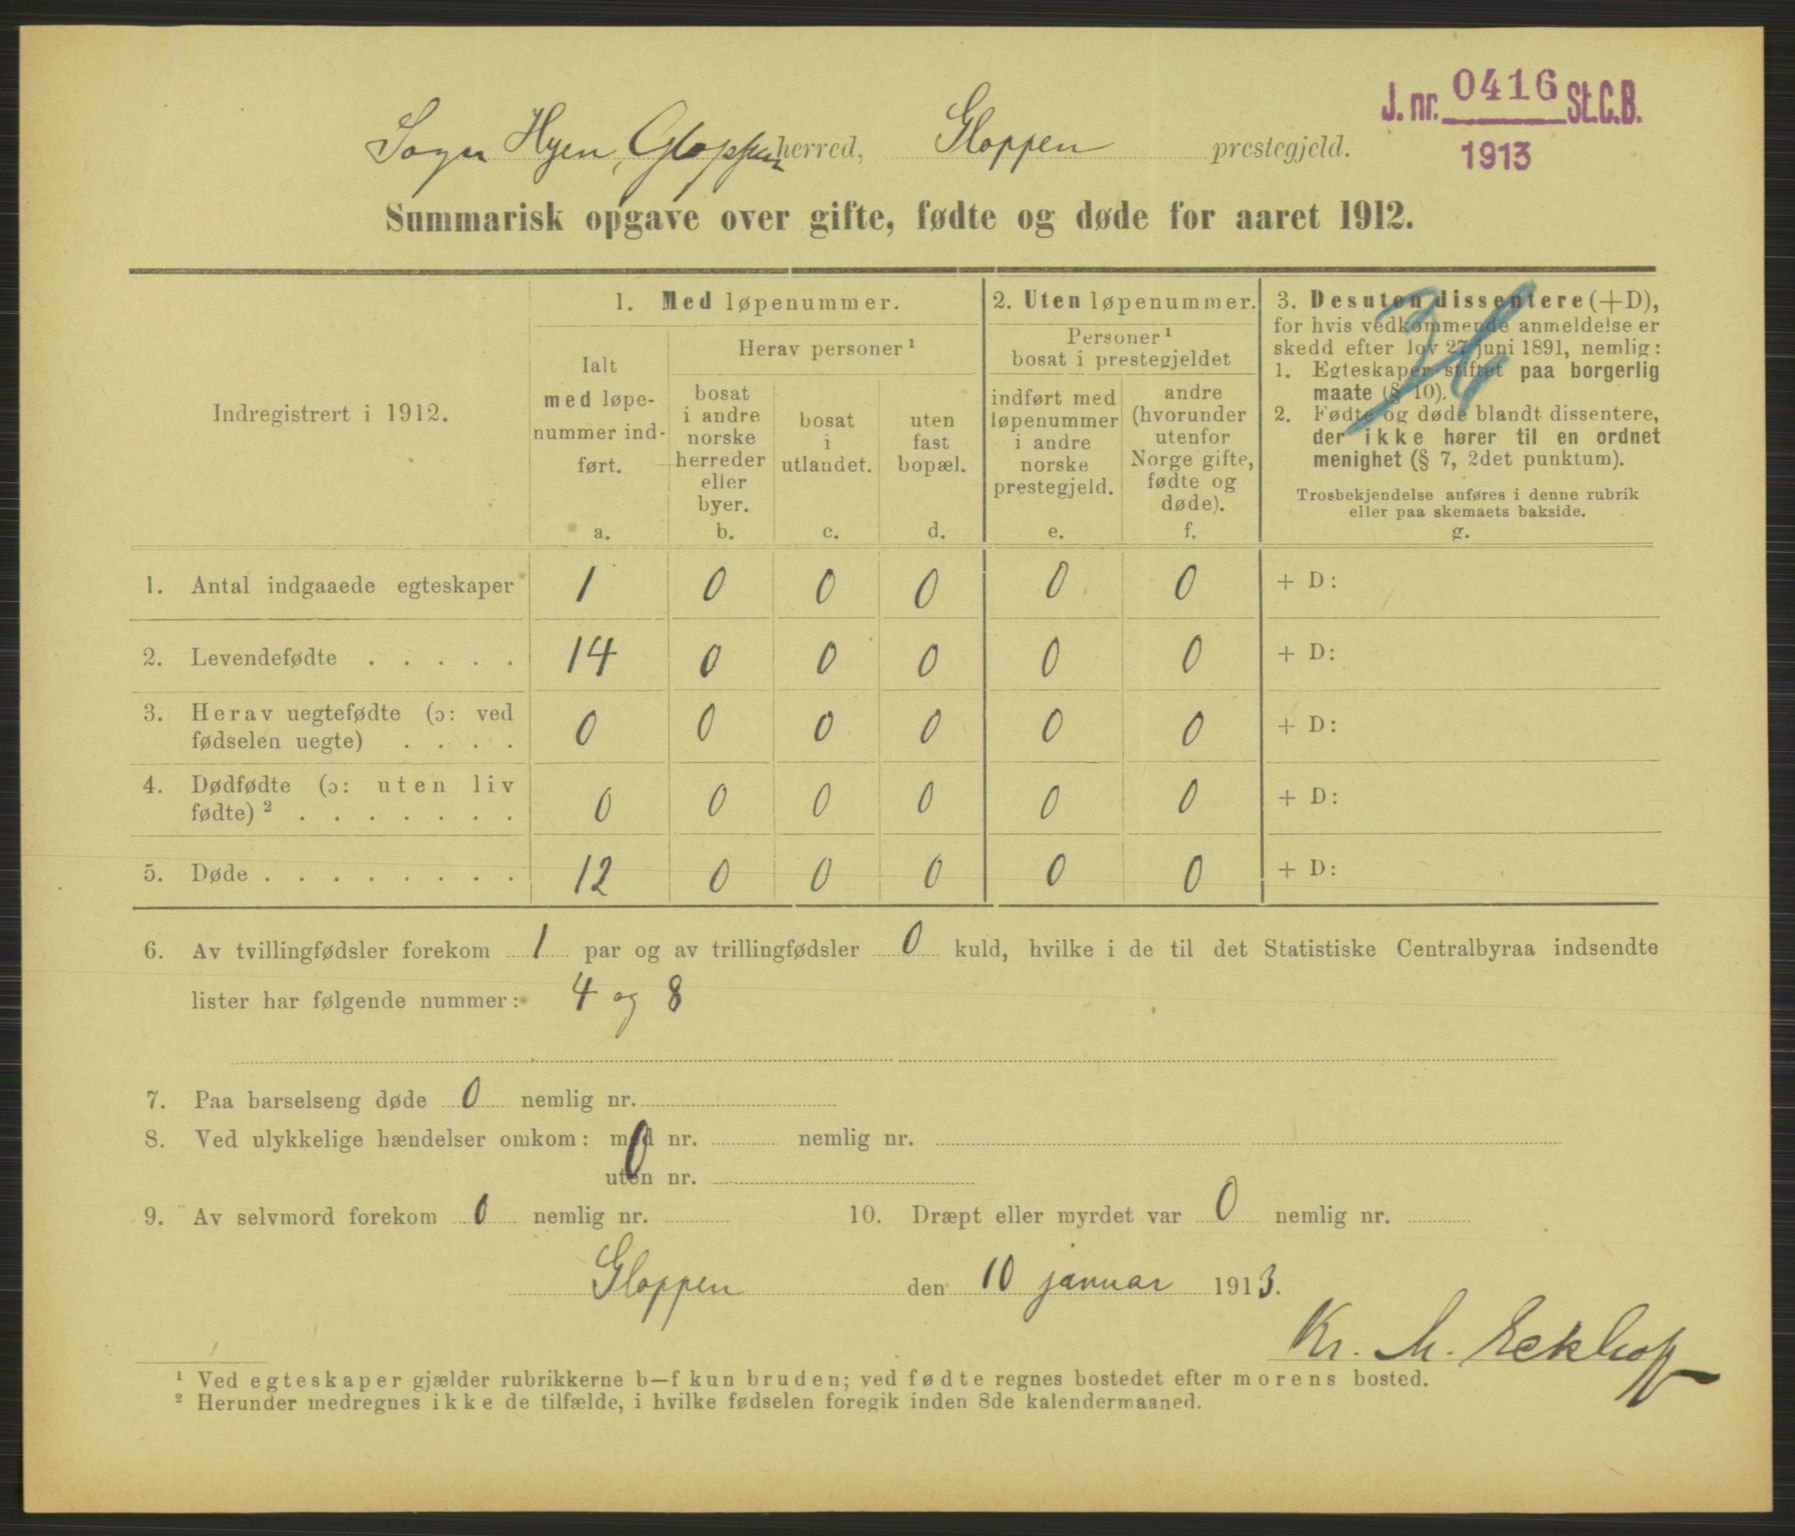 J. nr. 0416 St.C.B.
1913
Sogn Hyen, Gloppen herred, Gloppen prestegjeld.
Summarisk opgave over gifte, fødte og døde for aaret 1912.
Indregistrert i 1912.
1. Med løpenummer.
Ialt
med løpe-
nummer ind-
ført.
a.
Herav personer ¹
bosat
i andre
norske
herreder
eller
byer.
b.
bosat
i
utlandet.
c.
uten
fast
bopæl.
d.
2. Uten løpenummer.
Personer ¹
bosat i prestegjeldet
indført med
løpenummer
i andre
norske
prestegjeld.
e.
andre
(hvorunder
utenfor
Norge gifte,
fødte og
døde).
f.
3. Desuten dissentere (+D),
for hvis vedkommende anmeldelse er
skedd efter lov 27 juni 1891, nemlig:
1. Egteskaper stiftet paa borgerlig
maate (§ 10).
2. Fødte og døde blandt dissentere,
der ikke hører til en ordnet
menighet (§ 7, 2det punktum).
Trosbekjendelse anføres i denne rubrik
eller paa skemaets bakside.
g.
1. Antal indgaaede egteskaper 1 0 0 0 0 0 + D:
2. Levendefødte . . . . . 14 0 0 0 0 0 + D:
3. Herav uegtefødte (ɔ: ved
fødselen uegte) . . . . 0 0 0 0 0 0 + D:
4. Dødfødte (ɔ: uten liv
fødte) ² . . . . . . . 0 0 0 0 0 0 + D:
5. Døde . . . . . . . . 12 0 0 0 0 0 + D:
6. Av tvillingfødsler forekom 1 par og av trillingfødsler 0 kuld, hvilke i de til det Statistiske Centralbyraa indsendte
lister har følgende nummer: 4 og 8
7. Paa barselseng døde 0 nemlig nr.
8. Ved ulykkelige hændelser omkom: med nr. nemlig nr.
0
uten nr.
9. Av selvmord forekom 0 nemlig nr. 10. Dræpt eller myrdet var 0 nemlig nr.
Gloppen den 10 januar 1913.
Kr. M. Eckhoff
¹ Ved egteskaper gjælder rubrikkerne b—f kun bruden; ved fødte regnes bostedet efter morens bosted.
² Herunder medregnes ikke de tilfælde, i hvilke fødselen foregik inden 8de kalendermaaned.